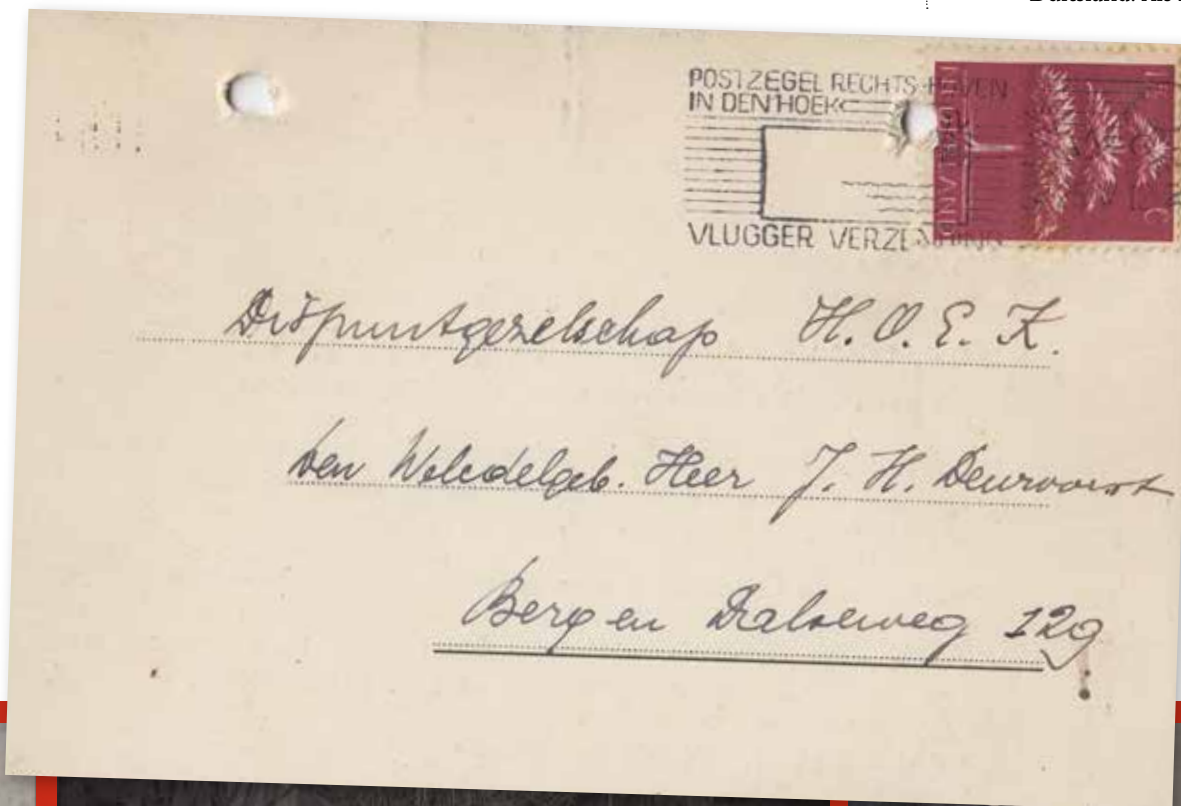 POSTZEGEL RECHTS-BOVEN
IN DEN HOEK
VLUGGER VERZENDING
NEDERLAND
Dispuutgezelschap H.O.E.K.
den Weledelgeb. Heer J. H. Deurvorst
Berg en Dalseweg 129